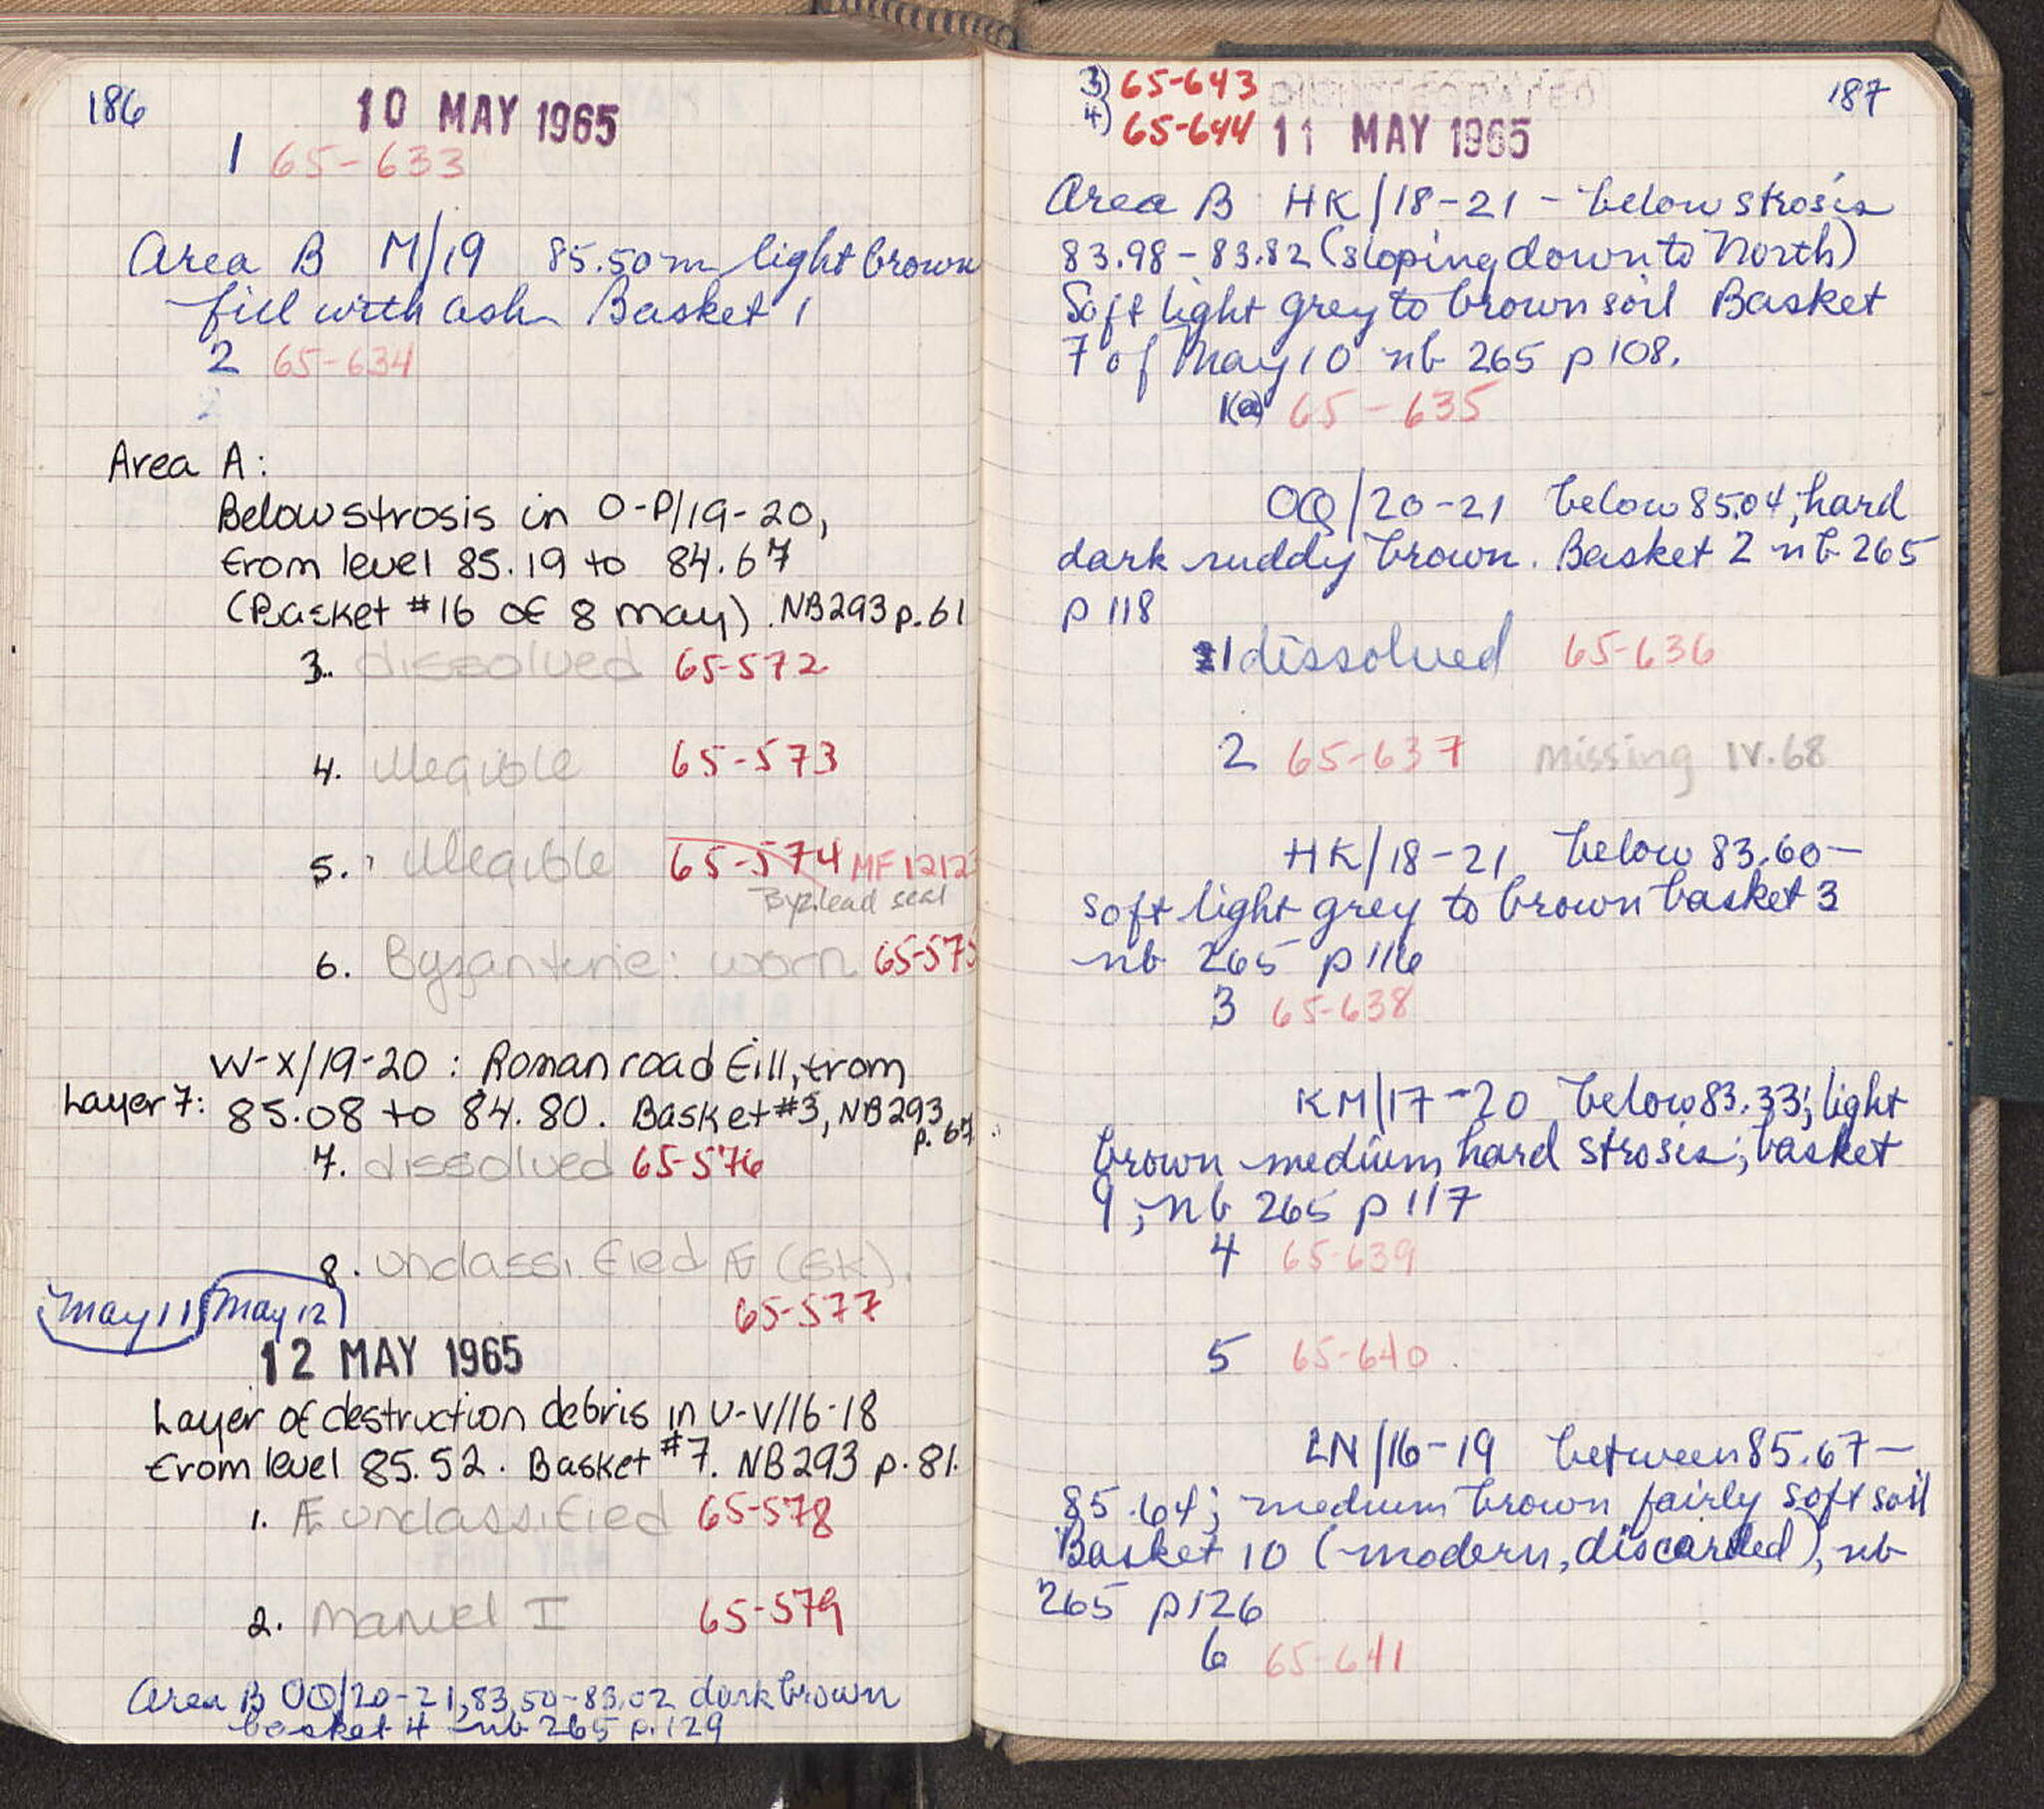 186
10 MAY 1965
1 65-633
Area B M/19 85.50m light brown
fill with ash Basket 1
2 65-634
2
Area A:
Below strosis in O-P/19-20,
from level 85.19 to 84.67
(Basket #16 of 8 may). NB293 p.61
3. dissolved 65-572
4. illegible 65-573
5. illegible 65-574 MF 1212
Byz. lead seal
6. Byzantine: worn 65-575
W-X/19-20 : Roman road fill, from
Layer 7: 85.08 to 84.80. Basket #3, NB293
p. 67
7. dissolved 65-576
8. unclassified Æ (GK).
65-577
May 11 May 12
12 MAY 1965
Layer of destruction debris in U-V/16-18
from level 85.52. Basket #7. NB293 p.81.
1. Æ unclassified 65-578
2. Manuel I 65-579
Area B OQ/20-21, 83,50-83.02 dark brown
basket 4 nb 265 p.129
3) 65-643 DISINTEGRATED
187
4) 65-644 11 MAY 1965
Area B HK/18-21 - below strosis
83.98-83.82 (sloping down to North)
Soft light grey to brown soil Basket
7 of May 10 nb 265 p 108.
65-635
OQ/20-21 below 85.04, hard
dark ruddy brown. Basket 2 nb 265
p 118
1 dissolved 65-636
2 65-637 missing IV.68
HK/18-21 below 83.60-
soft light grey to brown basket 3
nb 265 p 116
3 65-638
KM/17-20 below 83.33; light
brown medium hard strosis; basket
9; nb 265 p 117
4 65-639
5 65-640
LN/16-19 between 85.67-
85.64; medium brown fairly soft soil
Basket 10 (modern, discarded), nb
265 p126
6 65-641